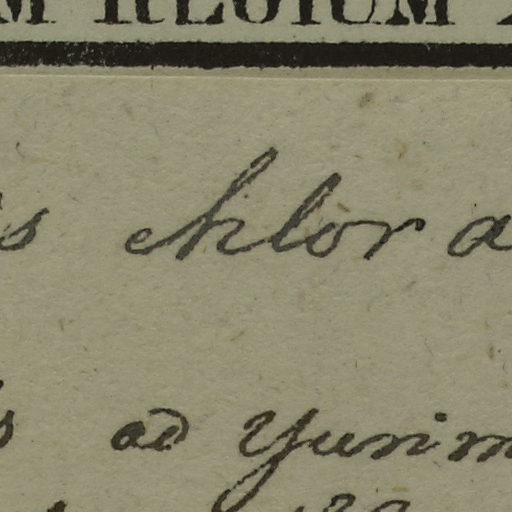 M REGIUM
s chlor a
s ad Yurim